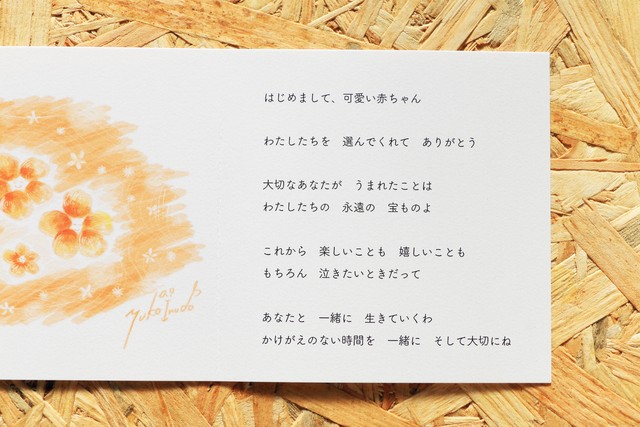 はじめまして、可愛い赤ちゃん
わたしたちを　選んでくれて　ありがとう
大切なあなたが　うまれたことは
わたしたちの　永遠の　宝ものよ
これから　楽しいことも　嬉しいことも
もちろん　泣きたいときだって
あなたと　一緒に　生きていくわ
かけがえのない時間を　一緒に　そして大切にね